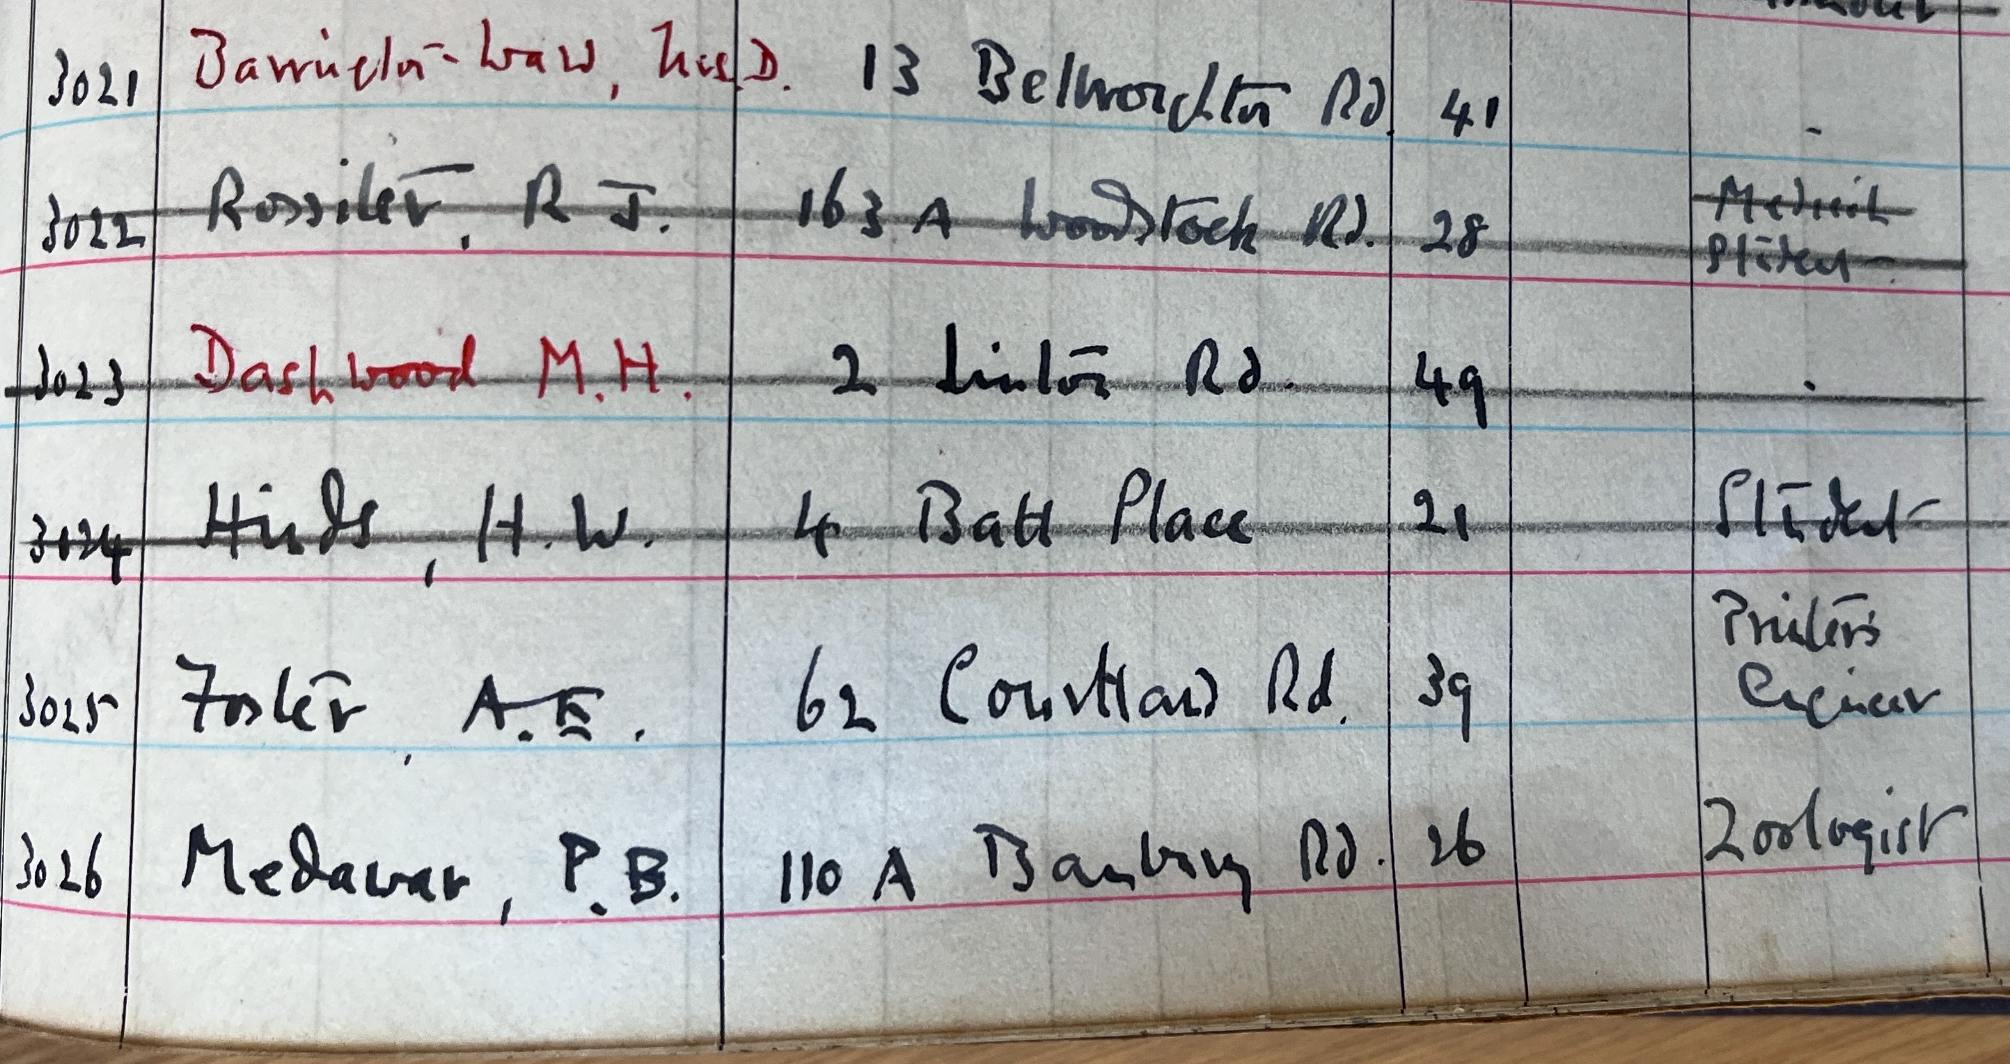 3021 Barrington-Law, Mrs D. 13 Belbroughton Rd 41 -
3022 Rossiter, R J. 163 A Woodstock Rd. 28 Medical
Student
3023 Dashwood M.H. 2 Linton Rd. 49 -
3024 Hinds, H.W. 4 Batt Place 21 Student
Printers
3025 Foster, A.E. 62 Courtland Rd. 39 Engineer
3026 Medawar, P.B. 110 A Banbury Rd. 26 Zoologist